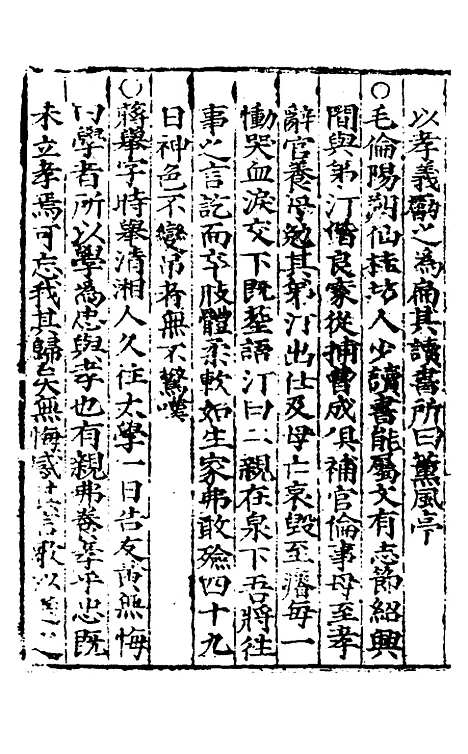 以孝義勵之為扁其讀書所曰薰風亭
○毛倫陽朔仙桂坊人少讀書能屬文有志節紹興
間與弟汀偕良家從捕曹成俱補官倫事母至孝
辭官養母勉其弟汀出仕及母亡哀毀至瘠每一
慟哭血淚交下既塟語汀曰二親在泉下吾將往
事之言訖而卒肢體柔軟如生家弗敢殮四十九
日神色不變吊者無不驚嘆
○蔣舉字時舉清湘人久住太學一日告友黃無悔
曰學者所以學為忠與孝也有親弗養孝乎忠既
未立孝焉可忘我其歸矣無悔感其言歌以